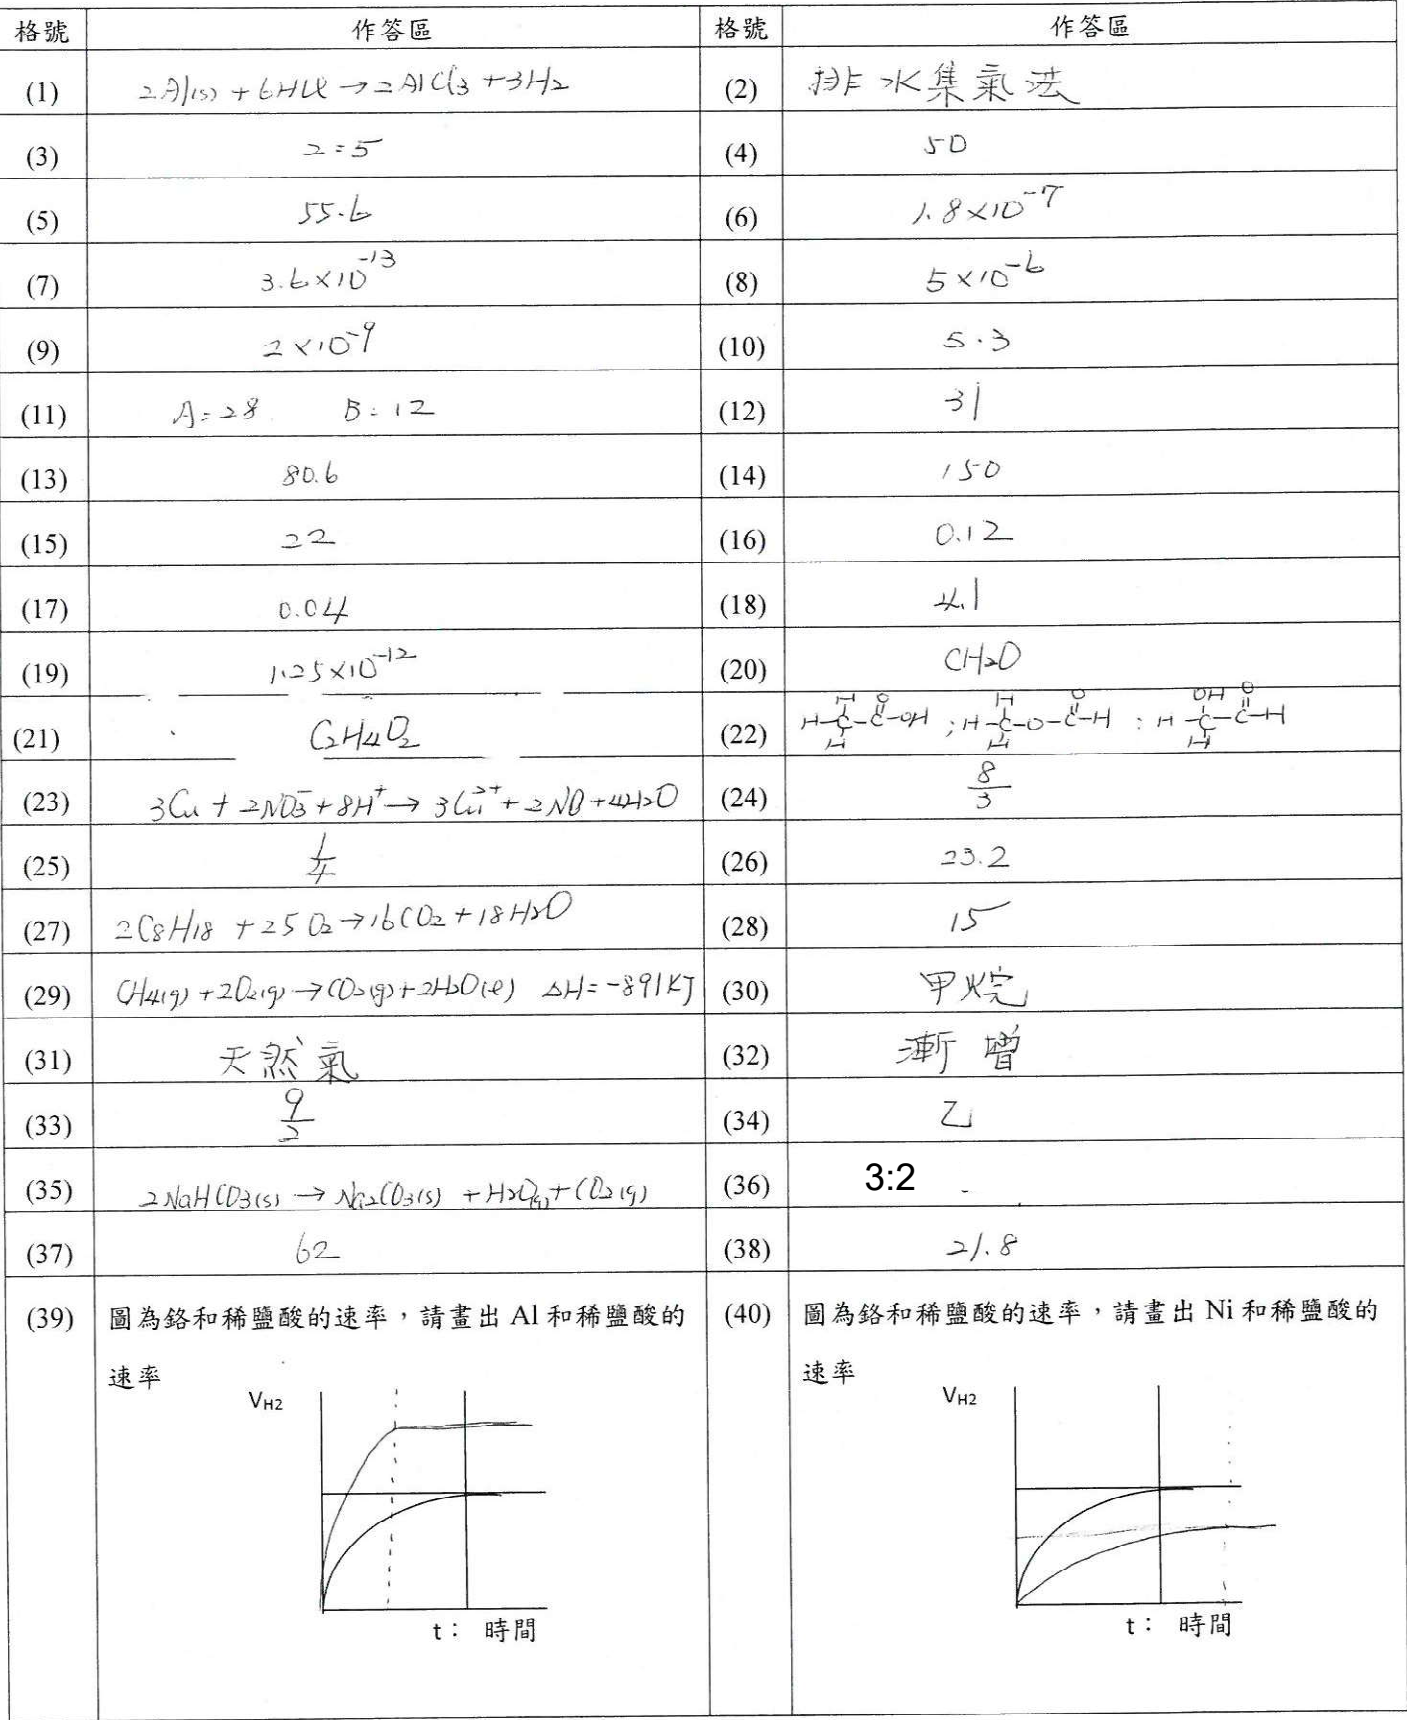 格號 作答區 格號 作答區
(1) 2Al(s) + 6HCl → 2AlCl3 + 3H2 (2) 排水集氣法
(3) 2:5 (4) 50
(5) 55.6 (6) 1.8×10⁻⁷
(7) 3.6×10⁻¹³ (8) 5×10⁻⁶
(9) 2×10⁻⁹ (10) 5.3
(11) A=28 B=12 (12) 31
(13) 80.6 (14) 150
(15) 22 (16) 0.12
(17) 0.04 (18) 4.1
(19) 1.25×10⁻¹² (20) CH2O
(21) C2H4O2 (22) H-C-C-OH ; H-C-O-C-H ; H-C-C-H
(23) 3Cu + 2NO3⁻ + 8H⁺ → 3Cu²⁺ + 2NO + 4H2O (24) 8/3
(25) 1/4 (26) 23.2
(27) 2C8H18 + 25O2 → 16CO2 + 18H2O (28) 15
(29) CH4(g) + 2O2(g) → CO2(g) + 2H2O(ℓ) ΔH = -891KJ (30) 甲烷
(31) 天然氣 (32) 漸增
(33) 9/2 (34) 乙
(35) 2NaHCO3(s) → Na2CO3(s) + H2O(g) + CO2(g) (36) 3:2
(37) 62 (38) 21.8
(39) 圖為鉻和稀鹽酸的速率，請畫出 Al 和稀鹽酸的
速率
VH2
t： 時間
(40) 圖為鉻和稀鹽酸的速率，請畫出 Ni 和稀鹽酸的
速率
VH2
t： 時間